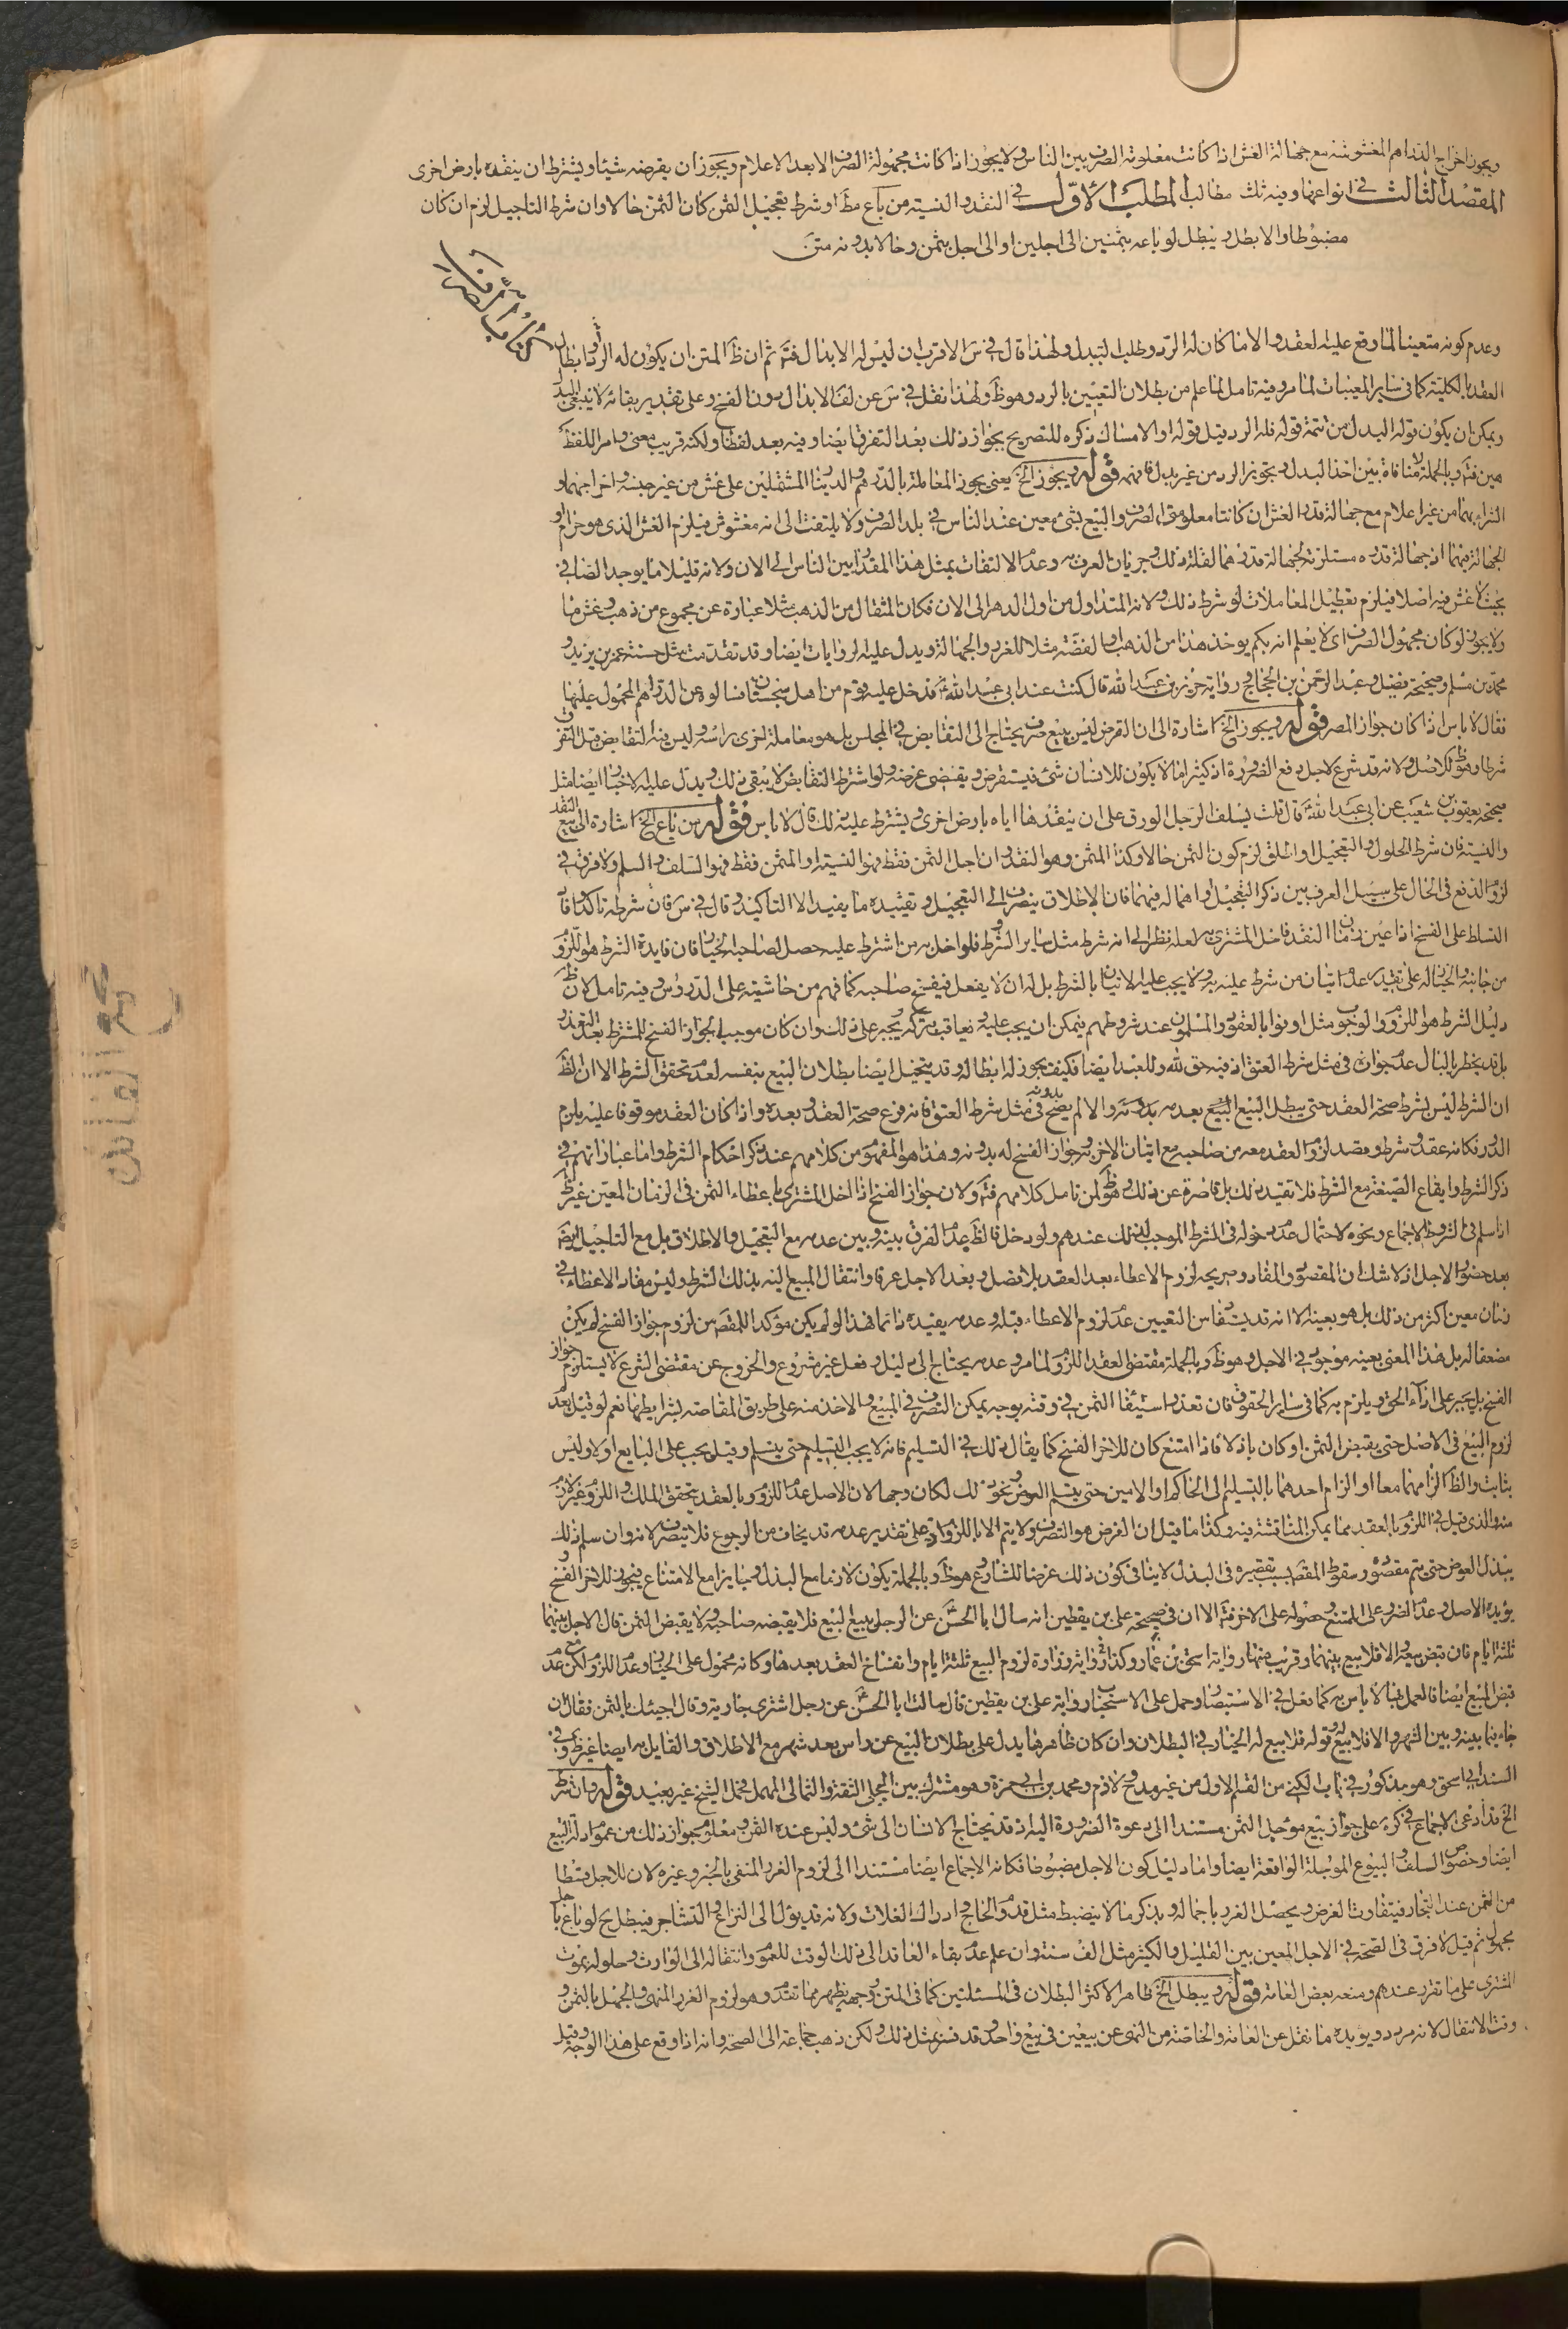 ويجوز اخراج الدراهم المغشوشة مع جهالة الغش اذا كانت معلومة الصرف بين الناس ولا يجوز اذا كانت مجهولة الصرف الا بعد الاعلام ويجوز ان يقرضه شيئا ويشترط ان ينقده بارض اخرى
المقصد الثالث في انواعها وفيه ثلث مطالب المطلب الاول في النقد والنسية من باع مط او شرط تعجيل الثمن كان الثمن حالا وان شرط التاجيل لزم ان كان
مضبوطا والا بطل ويبطل لو باعه بثمنين الى اجلين او الى اجل بثمن وحالا بدونه متن
وعدم كونه متعينا لما وقع عليه العقد والا ما كان له الرد وطلب البدل ولهذا قال في س الاقرب ان ليس له الابدال فتم ثم ان ظ المتن ان يكون له الرد وابطال
العقد بالكلية كما في ساير المعيبات لما مر وفيه تامل لما علم من بطلان التعيين بالرد وهو ظ ولهذا نقل في س عن لف الابدال دون الفسخ وعلى تقدير بقائه لا ينبغي البدل
ويمكن ان يكون قوله البدل من تتمة قوله فله الرد قبل قوله او الامساك ذكره للتصريح بجواز ذلك بعد التفرق ايضا وفيه بعد لفظا ولكنه قريب معنى وامر اللفظ
هين فتم وبالجملة لا منافاة بين اخذ البدل وتجويز الرد من غير بدل فافهم قوله ويجوز الخ يعني يجوز المعاملة بالدرهم والدينار المشتملين على غش من غير جنسه واخراجهما و
الشراء بهما من غير اعلام مع جهالة قدر الغش ان كانتا معلومتي الصرف والبيع بشئ معين عند الناس في بلد الصرف ولا يلتفت الى انه مغشوش فيلزم الغش الذي هو حرام او
الجهالة فيهما اذ جهالة قدره مستلزمة لجهالة قدرهما لقلة ذلك وجريان العرف به وعدم الالتفات بمثل هذا المقدار بين الناس الى الان ولانه قليلا ما يوجد الصافي
بحيث لا غش فيه اصلا فيلزم تعطيل المعاملات لو شرط ذلك ولانه المتداول من اول الدهر الى الان فكان المثقال من الذهب مثلا عبارة عن مجموع من ذهب وغش ما
ولا يجوز لو كان مجهول الصرف اي لا يعلم انه بكم يوخذ هذا من الذهب او الفضة مثلا للغرر والجهالة ويدل عليه الروايات ايضا وقد تقدمت مثل حسنة عمر بن يزيد و
محمد بن مسلم وصحيحة فضل وعبد الرحمن بن الحجاج ورواية حريز بن عبد الله قال كنت عند ابي عبد الله ع فدخل عليه قوم من اهل سجستان فسالوه عن الدراهم المحمول عليها
فقال لا باس اذا كان جواز المصر قوله ويجوز الخ اشارة الى ان القرض ليس ببيع صرف يحتاج الى التقابض في المجلس بل هو معاملة اخرى راسه وليس فيه التقابض قبل التفرق
شرطا وهو ظ للاصل ولانه قد شرع لاجل دفع الضرورة اذ كثيرا ما لا يكون للانسان شئ فيستقرض ويقضي غرضه ولو اشترط التقابض لا يبقى ذلك ويدل عليه الاخبار ايضا مثل
صحيحة يعقوب بن شعيب عن ابي عبد الله ع قال قلت يسلف الرجل الورق على ان ينقدها اياه بارض اخرى ويشترط عليه ذلك قال لا باس قوله من باع الخ اشارة الى بيع النقد
والنسية فان شرط الحلول والتعجيل او اطلق لزم كون الثمن حالا وكذا المثمن وهو النقد وان اجل الثمن فقط فهو النسية او المثمن فقط فهو السلف والسلم ولا فرق في
لزوم الدفع في الحال على سبيل العرف بين ذكر التعجيل واهماله فيهما فان الاطلاق ينصرف الى التعجيل وتقييده ما يفيد الا التاكيد وقال في س فان شرطه تاكد وافاد
التسلط على الفسخ اذا عين زمان النقد فاخل المشتري به لعله نظر الى انه شرط مثل ساير الشروط فلو اخل به من اشترط عليه حصل لصاحبه الخيار فان فايدة الشرط هو اللزوم
من جانبه والخيار له على تقدير عدم اتيان من شرط عليه به ولا يجب عليه الاتيان بالشرط بل له ان لا يفعل فيفسخ صاحبه كما فهم من حاشيته على الدروس وفيه تامل لان ظ
دليل الشرط هو اللزوم والوجوب مثل اوفوا بالعقود والمسلمون عند شروطهم فيمكن ان يجب عليه ويعاقب بتركه ويجبر على ذلك وان كان موجبا لجواز الفسخ للمشترط بعد التعذر و
بل قد يخطر بالبال عدم جوازه في مثل شرط العتق اذ فيه حق لله وللعبد ايضا فكيف يجوز له ابطاله وقد يتخيل ايضا بطلان البيع بنفسه لعدم تحقق الشرط الا ان الظ
ان الشرط ليس لشرط صحة العقد حتى يبطل البيع بعدمه بدونه والا لم يصح في مثل شرط العتق فانه فرع صحة العقد وبعده واذا كان العقد موقوفا عليه يلزم
الدور فكانه عقد وشرط وقصد لزوم العقد معه من صاحبه مع اتيان الاخر به وجواز الفسخ له بدونه وهذا هو المفهوم من كلامهم عند ذكر احكام الشرط واما عباراتهم في
ذكر الشرط وايقاع الصيغة مع الشرط فلا تفيد ذلك بل قاصرة عن ذلك وهو ظ لمن تامل كلامهم فتم ولان جواز الفسخ اذا اخل المشتري باعطاء الثمن في الزمان المعين غير ظ
اذا سلم في الشروط الاجماع ونحوه لاحتمال عدم دخوله في الشرط الموجب لذلك عندهم ولو دخل فالظ عدم الفرق بينه وبين عدمه مع التعجيل والاطلاق بل مع التاجيل ايضا
بعد حضور الاجل اذ لا شك ان المقصود والمفاد وصريحه لزوم الاعطاء بعد العقد بلا فصل وبعد الاجل عرفا وانتقال المبيع اليه بذلك الشرط وليس مفاد الاعطاء في
زمان معين اكثر من ذلك بل هو بعينه الا انه قد يستفاد من التعيين عدم لزوم الاعطاء قبله وعدمه يفيده دائما فهذا لو لم يكن مؤكدا للمقصد من لزوم جواز الفسخ لم يكن
مضعفا له بل هذا المعنى بعينه موجود في الاجل وهو ظ وبالجملة مقتضى العقد اللزوم لما مر وعدمه يحتاج الى دليل وفعل غير مشروع والخروج عن مقتضى الشرع لا يستلزم جواز
الفسخ بل يجبر على اداء الحق ويلزم به كما في ساير الحقوق فان تعذر استيفاء الثمن في وقته بوجه يمكن التصرف في المبيع والاخذ منه على طريق المقاصة بشرايطها نعم لو قيل بعدم
لزوم البيع في الاصل حتى يقبض الثمن او كان باذلا فاذا امتنع كان للاخر الفسخ كما يقال ذلك في التسليم فانه لا يجب التسليم حتى يتسلم وقيل يجب على البايع اولا وليس
بثابت والظ الزامهما معا او الزام احدهما بالتسليم الى الحاكم او الامين حتى يتسلم العوض ونحو ذلك لكان وجها لان الاصل عدم اللزوم وبالعقد يتحقق الملك واللزوم غير لازم
منه والذي قيل في اللزوم بالعقد مما يمكن المناقشة فيه وكذا ما قيل ان الغرض هو التصرف ولا يتم الا باللزوم اذ على تقدير عدمه قد يخاف من الرجوع فلا يتصرف لانه وان سلم ذلك
يبذل العوض حتى يتم مقصوده وسقوط المقصد بسبب تقصيره في البذل لا ينافي كون ذلك غرضا للشارع وهو ظ وبالجملة يكون لازما مع البذل وجايزا مع الامتناع فيجوز للاخر الفسخ و
يؤيده الاصل وعدم الضرر على الممتنع وحصوله على الاخر فتم الا ان في صحيحة علي بن يقطين انه سال ابا الحسن ع عن الرجل يبيع البيع فلا يقبضه صاحبه ولا يقبض الثمن قال الاجل بينهما
ثلثة ايام فان قبض بيعه والا فلا بيع بينهما وقريب منها رواية اسحق بن عمار وكذا رواية زرارة لزوم البيع ثلثة ايام وانفساخ العقد بعدها وكانه محمول على الخيار وعدم اللزوم ولكن مع عدم
قبض المبيع ايضا فالعمل بها لا باس به كما نقل في الاستبصار وحمل على الاستحباب رواية علي بن يقطين قال سالت ابا الحسن ع عن رجل اشترى جارية وقال اجيئك بالثمن فقال ان
جاء فيما بينه وبين الشهر والا فلا بيع له وقوله فلا بيع له الخيار في البطلان وان كان ظاهرها يدل على بطلان البيع عن راس بعد شهر مع الاطلاق والقايل به ايضا غير ظ وفي
السند ابي اسحق وهو مذكور في باب الكنى من القسم الاول من غير مدح ولا ذم ومحمد بن ابي حمزة وهو مشترك بين البجلي الثقة والثمالي المهمل فحمل الشيخ غير بعيد قوله وان شرط
الخ قد ادعى الاجماع في كره على جواز بيع مؤجل الثمن مستندا الى دعوة الضرورة اليه اذ قد يحتاج الانسان الى شئ وليس عنده الثمن ومعلوم جواز ذلك من عموم ادلة البيع
ايضا وخصوص السلف والبيوع الموجلة الواقعة ايضا واما دليل كون الاجل مضبوطا فكانه الاجماع ايضا مستندا الى لزوم الغرر المنفي بالخبر وغيره لان للاجل قسطا
من الثمن عند التجار فيتفاوت الغرض ويحصل الغرر باجماله وبذكر ما لا ينضبط مثل قدوم الحاج وادراك الغلات ولانه قد يؤل الى النزاع والتشاجر فيبطل ح لو باع باجل
مجهول ثم قيل لا فرق في الصحة في الاجل المعين بين القليل والكثير مثل الف سنة وان علم عدم بقاء العاقد الى ذلك الوقت للعموم وانتقاله الى الوارث وحلوله بموت
المشتري على ما تقرر عندهم ومنعه بعض العامة قوله ويبطل الخ ظاهر الاكثر البطلان في المسئلتين كما في المتن ووجهه يظهر مما تقدم وهو لزوم الغرر المنهي والجهل بالثمن و
وقت الانتقال لانه مردد ويؤيده ما نقل عن العامة والخاصة من النهي عن بيعين في بيع واحد وقد فسر بمثل ذلك ولكن ذهب جماعة الى الصحة وانه اذا وقع على هذا الوجه وقيل